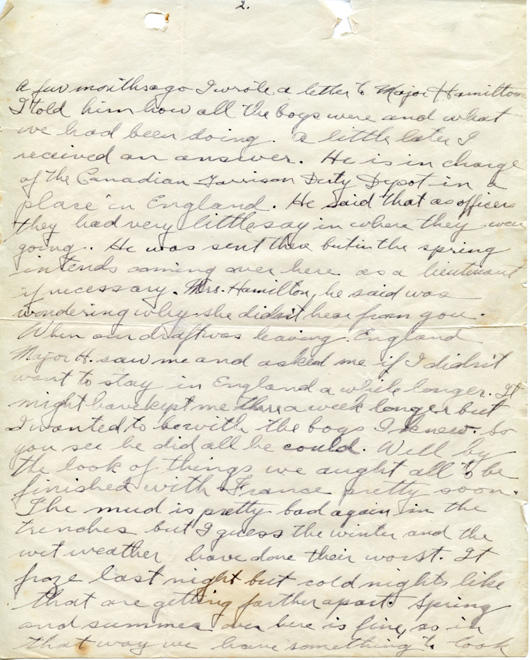 2.
A few months ago I wrote a letter to Major Hamilton
I told him how all the boys were and what
we had been doing. A little later I
received an answer. He is in charge
of the Canadian Garrison Duty Depot in a
place in England. He said that as officers
they had very little say in where they were
going. He was sent there but in the spring
intends coming over here as a lieutenant
if necessary. Mrs. Hamilton, he said was
wondering why she didn't hear from you.
When our draft was leaving England
Major H. saw me and asked me if I didn't
want to stay in England a while longer. It
might have kept me there a week longer but
I wanted to be with the boys I knew. So
you see he did all he could. Well by
the look of things we aught all to be
finished with France pretty soon.
The mud is pretty bad again in the
trenches but I guess the winter and the
wet weather have done their worst. It
froze last night but cold nights like
that are getting farther apart. Spring
and summer over here is fine, so in
that way we have something to look